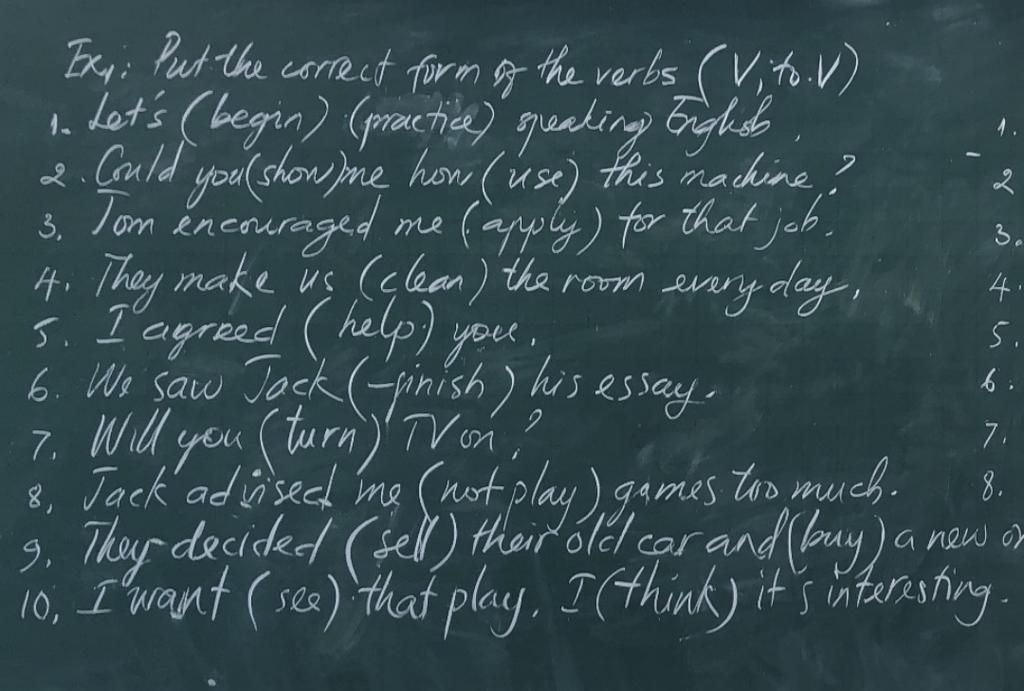 Ex1: Put the correct form of the verbs (V, to.V)
1. Let's (begin) (practice) speaking English.
2. Could you (show) me how (use) this machine?
3. Tom encouraged me (apply) for that job.
4. They make us (clean) the room every day.
5. I agreed (help) you.
6. We saw Jack (finish) his essay.
7. Will you (turn) TV on?
8. Jack advised me (not play) games too much.
9. They decided (sell) their old car and (buy) a new
10. I want (see) that play. I (think) it's interesting.
1.
2
3.
4.
5.
6.
7.
8.